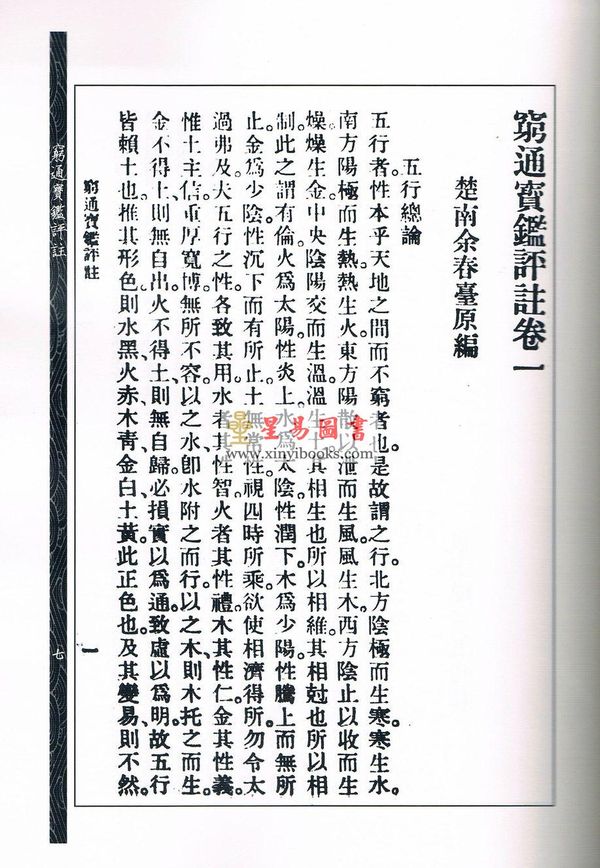 窮通寶鑑評註卷一
楚南余春臺原編
五行總論
五行者性本乎天地之間而不窮者也是故謂之行。北方陰極而生寒。寒生水。
南方陽極而生熱熱生火。東方陽散以泄而生風風生木。西方陰止以收而生
燥。燥生金。中央陰陽交而生溫。溫生土。其相生也所以相維。其相尅也所以相
制。此之謂有倫。火爲太陽。性炎上。水爲太陰性潤下。木爲少陽。性騰上而無所
止。金爲少陰。性沉下而有所止。土無常性。視四時所乘。欲使相濟得所。勿令太
過弗及。夫五行之性。各致其用。水者其性智。火者其性禮。木其性仁。金其性義。
惟土主信。重厚寬博。無所不容。以之水、卽水附之而行。以之木、則木托之而生。
金不得土、則無自出。火不得土、則無自歸。必損實以爲通。致虛以爲明。故五行
皆賴土也。推其形色。則水黑火赤、木青、金白、土黃。此正色也。及其變易、則不然。
窮通寶鑑評註
一
窮通寶鑑評註
七
星易圖書
www.xinyibooks.com